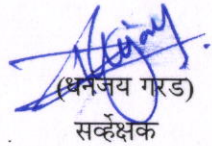 (धनंजय गरड)
सर्व्हेक्षक